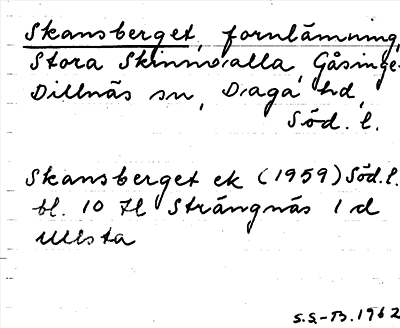 Skansberget, fornlämning,
Stora Skinnvalla, Gåsinge-
Dillnäs sn, Daga hd,
Söd. l.
Skansberget ek (1959) Söd. l.
bl. 10 H Strängnäs 1 d
Ullsta
S.S.-B. 1962